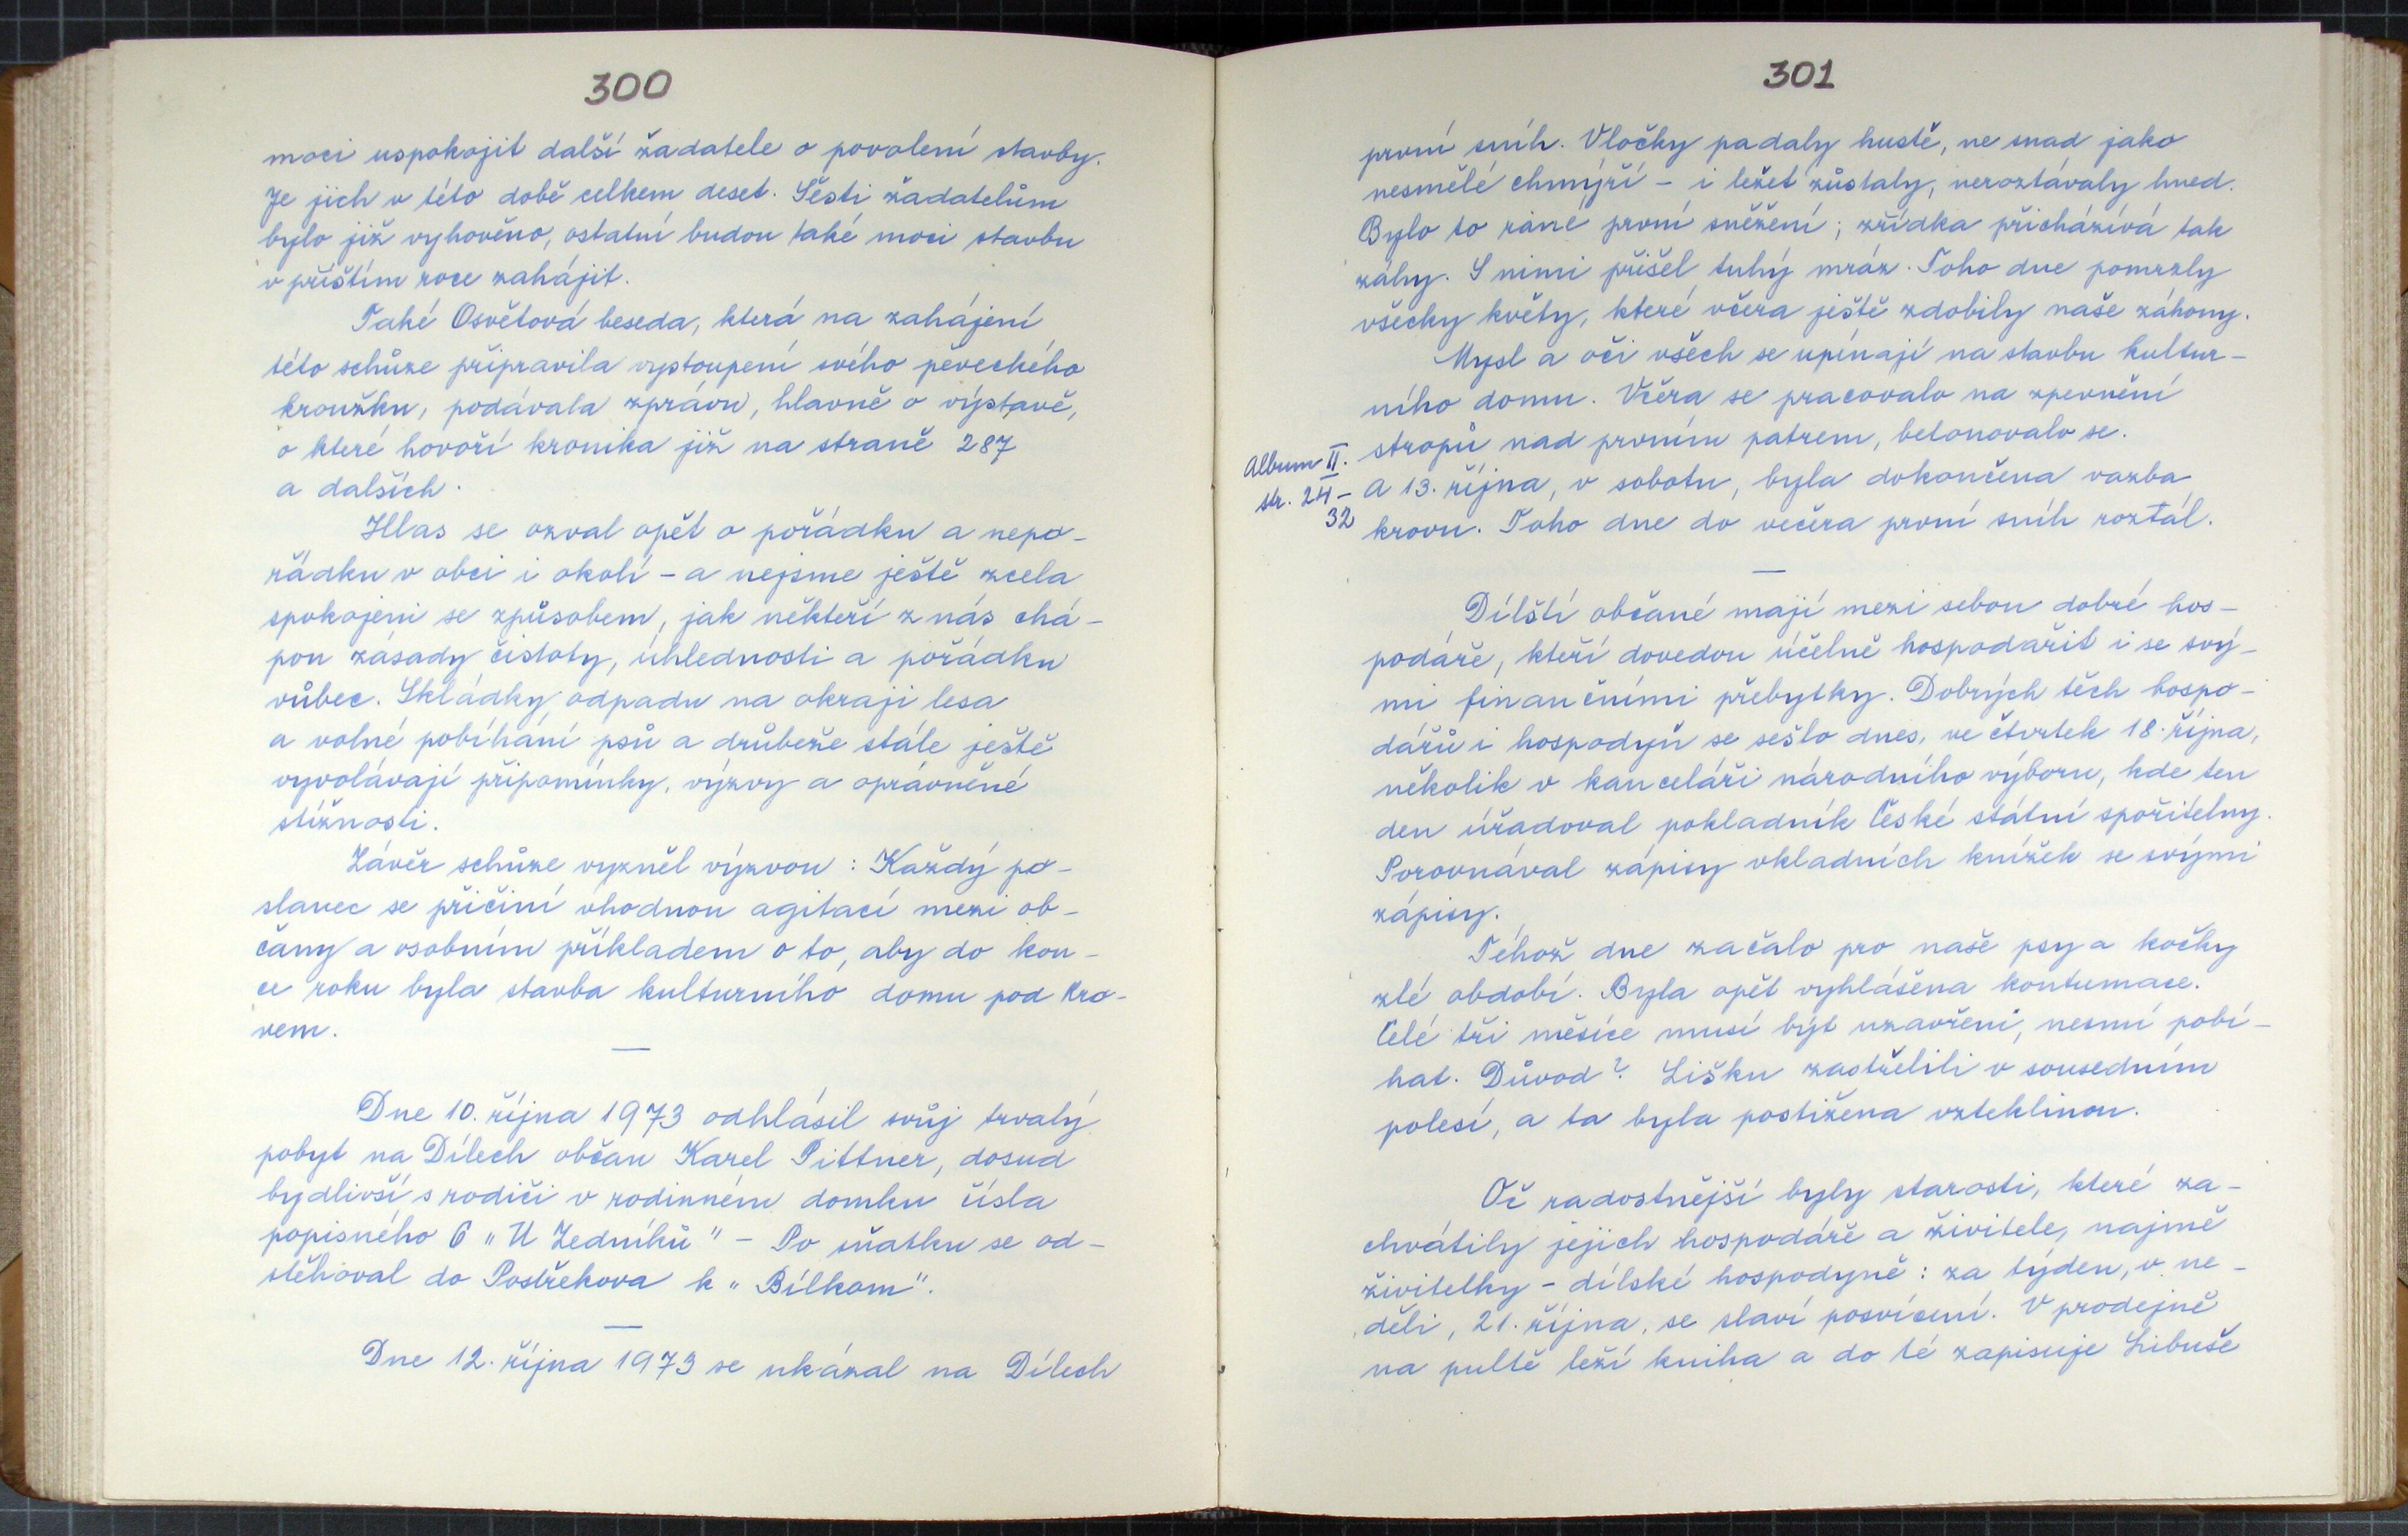 300
moci uspokojit další žadatele o povolení stavby.
Je jich v této době celkem deset. Šesti žadatelům
bylo již vyhověno, ostatní budou také moci stavbu
v příštím roce zahájit.
Také Osvětová beseda, která na zahájení
této schůze připravila vystoupení svého pěveckého
kroužku, podávala zprávu, hlavně o výstavě,
o které hovoří kronika již na straně 287
a dalších.
Hlas se ozval opět o pořádku a nepo-
řádku v obci i okolí - a nejsme ještě zcela
spokojeni se způsobem, jak někteří z nás chá-
pou zásady čistoty, úhlednosti a pořádku
vůbec. Skládky odpadu na okraji lesa
a volné pobíhání psů a drůbeže stále ještě
vyvolávají připomínky, výzvy a oprávněné
stížnosti.
Závěr schůze vyzněl výzvou: Každý po-
slanec se přičiní vhodnou agitací mezi ob-
čany a osobním příkladem o to, aby do kon-
ce roku byla stavba kulturního domu pod kro-
vem.
—
Dne 10. října 1973 odhlásil svůj trvalý
pobyt na Dílech občan Karel Pittner, dosud
bydlivší s rodiči v rodinném domku čísla
popisného 6 „U Zedníků" - Po sňatku se od-
stěhoval do Postřekova k „Bílkom".
—
Dne 12. října 1973 se ukázal na Dílech
301
první sníh. Vločky padaly hustě, ne snad jako
nesmělé chmýří - i ležet zůstaly, neroztávaly hned.
Bylo to rané první sněžení; zřídka přicházívá tak
záhy. S nimi přišel tuhý mráz. Toho dne pomrzly
všecky květy, které včera ještě zdobily naše záhony.
Mysl a oči všech se upínají na stavbu kultur-
ního domu. Včera se pracovalo na zpevnění
stropů nad prvním patrem, betonovalo se.
Album II.
str. 24-
32
A 13. října, v sobotu, byla dokončena vazba
krovu. Toho dne do večera první sníh roztál.
—
Dílští občané mají mezi sebou dobré hos-
podáře, kteří dovedou účelně hospodařit i se svý-
mi finančními přebytky. Dobrých těch hospo-
dářů i hospodyň se sešlo dnes, ve čtvrtek 18. října,
několik v kanceláři národního výboru, kde ten
den úřadoval pokladník České státní spořitelny.
Porovnával zápisy vkladních knížek se svými
zápisy.
Téhož dne začalo pro naše psy a kočky
zlé období. Byla opět vyhlášena kontumace.
Celé tři měsíce musí být uzavřeni, nesmí pobí-
hat. Důvod? Lišku zastřelili v sousedním
polesí, a ta byla postižena vzteklinou.
Oč radostnější byly starosti, které za-
chvátily jejich hospodáře a živitele, najmě
živitelky - dílské hospodyně: za týden, v ne-
děli, 21. října, se slaví posvícení. V prodejně
na pultě leží kniha a do té zapisuje Libuše